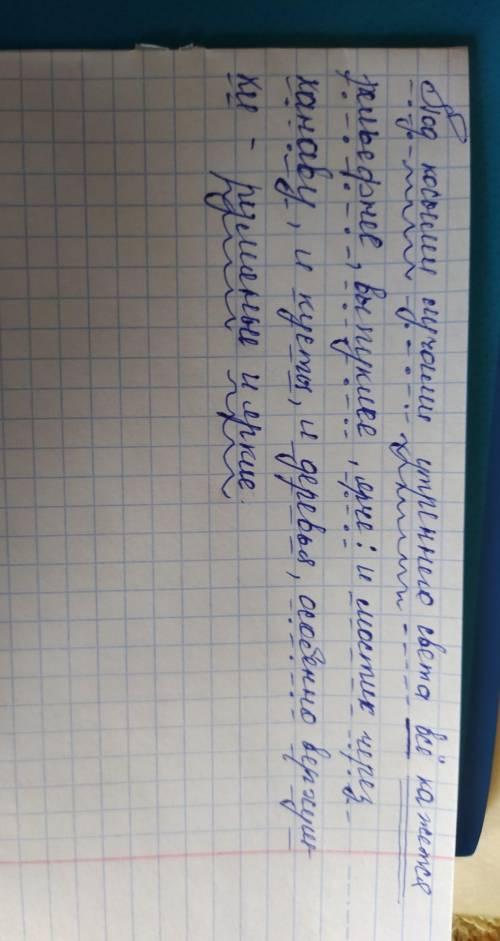 Под косыми лучами утреннего света всё кажется
рельефнее, выпуклее, ярче: и мостик через
канаву, и кусты, и деревья, особенно верхуш-
ки - румяные и яркие.